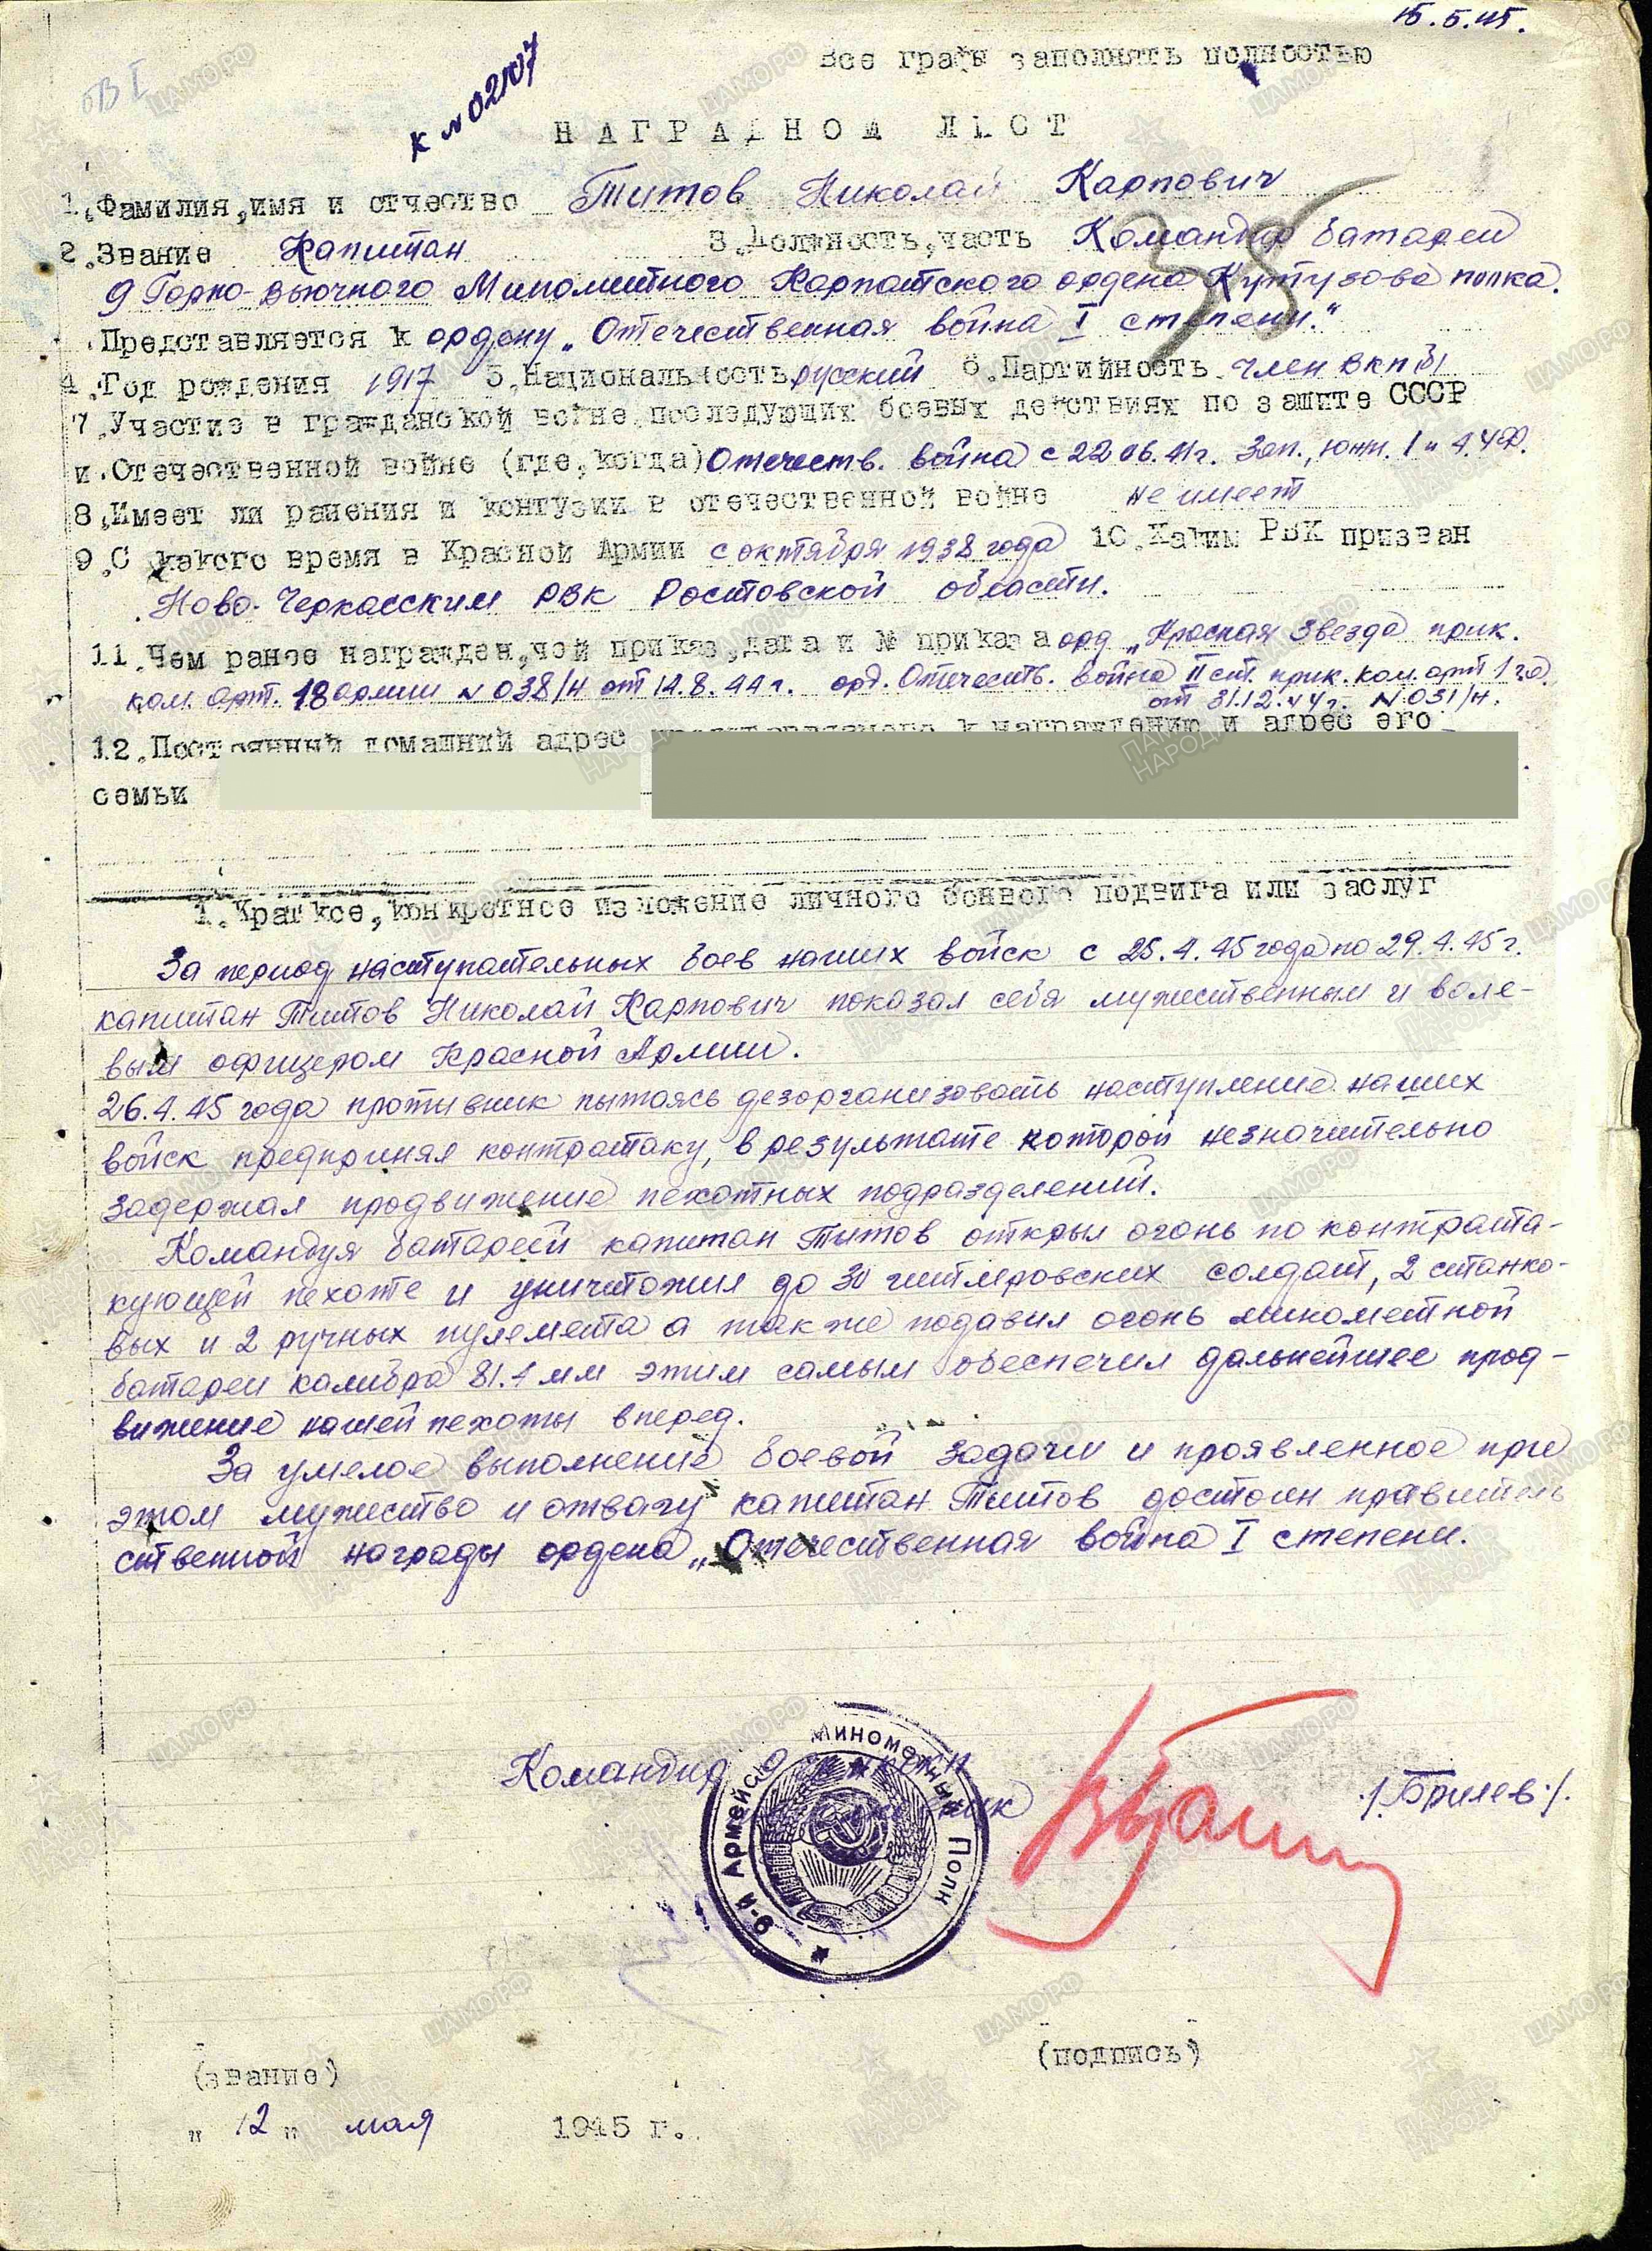 15.5.45.
Все графы заполнять полностью
ОВ I
к № 02107
НАГРАДНОЙ ЛИСТ
1. Фамилия, имя и отчество Титов Николай Карпович
2. Звание Капитан 3. Должность, часть Командир батареи
9 Горно-вьючного Минометного Карпатского ордена Кутузова полка.
Представляется к ордену „Отечественная война I степени."
4. Год рождения 1917 5. Национальность русский 6. Партийность член ВКП(б)
7. Участие в гражданской войне последующих боевых действиях по защите СССР
и Отечественной войне (где, когда) Отечеств. война с 22.06.41г. Зап., южн. 1 и 4 УФ.
8. Имеет ли ранения и контузии в отечественной войне не имеет
9. С какого время в Красной Армии с октября 1938 года 10. Каким РВК призван
Ново-Черкасским РВК Ростовской области.
11. Чем ранее награжден, чей приказ, дата и № приказа орд „Красная Звезда прик.
ком. арт. 18 армии № 038/н от 14.8.44 г. орд. Отечеств. война II ст. прик. ком. арт 1 г.а.
от 31.12.44 г. № 031/н.
12. Постоянный домашний адрес представляемого к награждению и адрес его
семьи
1. Краткое, конкретное изложение личного боевого подвига или заслуг
За период наступательных боев наших войск с 25.4.45 года по 29.4.45 г.
капитан Титов Николай Карпович показал себя мужественным и воле-
вым офицером Красной Армии.
26.4.45 года противник пытаясь дезорганизовать наступление наших
войск предпринял контратаку, в результате которой незначительно
задержал продвижение пехотных подразделений.
Командуя батареей капитан Титов открыл огонь по контрата-
кующей пехоте и уничтожил до 30 гитлеровских солдат, 2 станко-
вых и 2 ручных пулемета а также подавил огонь минометной
батареи калибра 81.4 мм этим самым обеспечил дальнейшее прод-
вижение нашей пехоты вперед.
За умелое выполнение боевой задачи и проявленное при
этом мужество и отвагу капитан Титов достоин правитель
ственной награды ордена „Отечественная война I степени.
Командир
/Брилев/.
9-й Армейский Минометный Полк
(звание)
(подпись)
„ 12 " мая 1945 г.